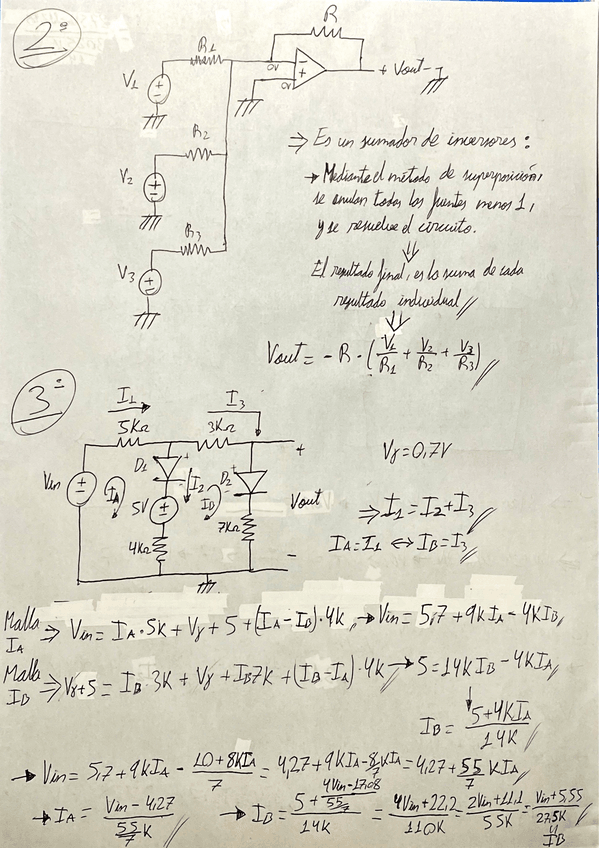 2º
R
R1
V1
0V
0V
+ Vout -
R2
V2
R3
V3
⇒ Es un sumador de inversores:
→ Mediante el método de superposición,
se anulan todas las fuentes menos 1,
y se resuelve el circuito.
El resultado final, es la suma de cada
resultado individual //
Vout = -R · (V1/R1 + V2/R2 + V3/R3) //
3º
I1
I3
5KΩ
3KΩ
Vγ = 0,7V
D1
I2
D2
+
Vin
IA
5V
IB
Vout
4KΩ
7KΩ
-
⇒ I1 = I2 + I3 //
IA = I1 ↔ IB = I3 //
Malla IA ⇒ Vin = IA · 5K + Vγ + 5 + (IA - IB) · 4K // → Vin = 5,7 + 9KIA - 4KIB //
Malla IB ⇒ Vγ + 5 = IB · 3K + Vγ + IB7K + (IB - IA) · 4K → 5 = 14KIB - 4KIA //
IB = (5 + 4KIA)/14K
→ Vin = 5,7 + 9KIA - (10 + 8KIA)/7 = 4,27 + 9KIA - 8/7 KIA = 4,27 + 55/7 KIA //
→ IA = (Vin - 4,27)/(55/7 K) // → IB = (5 + (4Vin - 17,08)/(55/7))/14K = (4Vin + 22,2)/110K = (2Vin + 11,1)/55K = (Vin + 5,55)/27,5K
IB